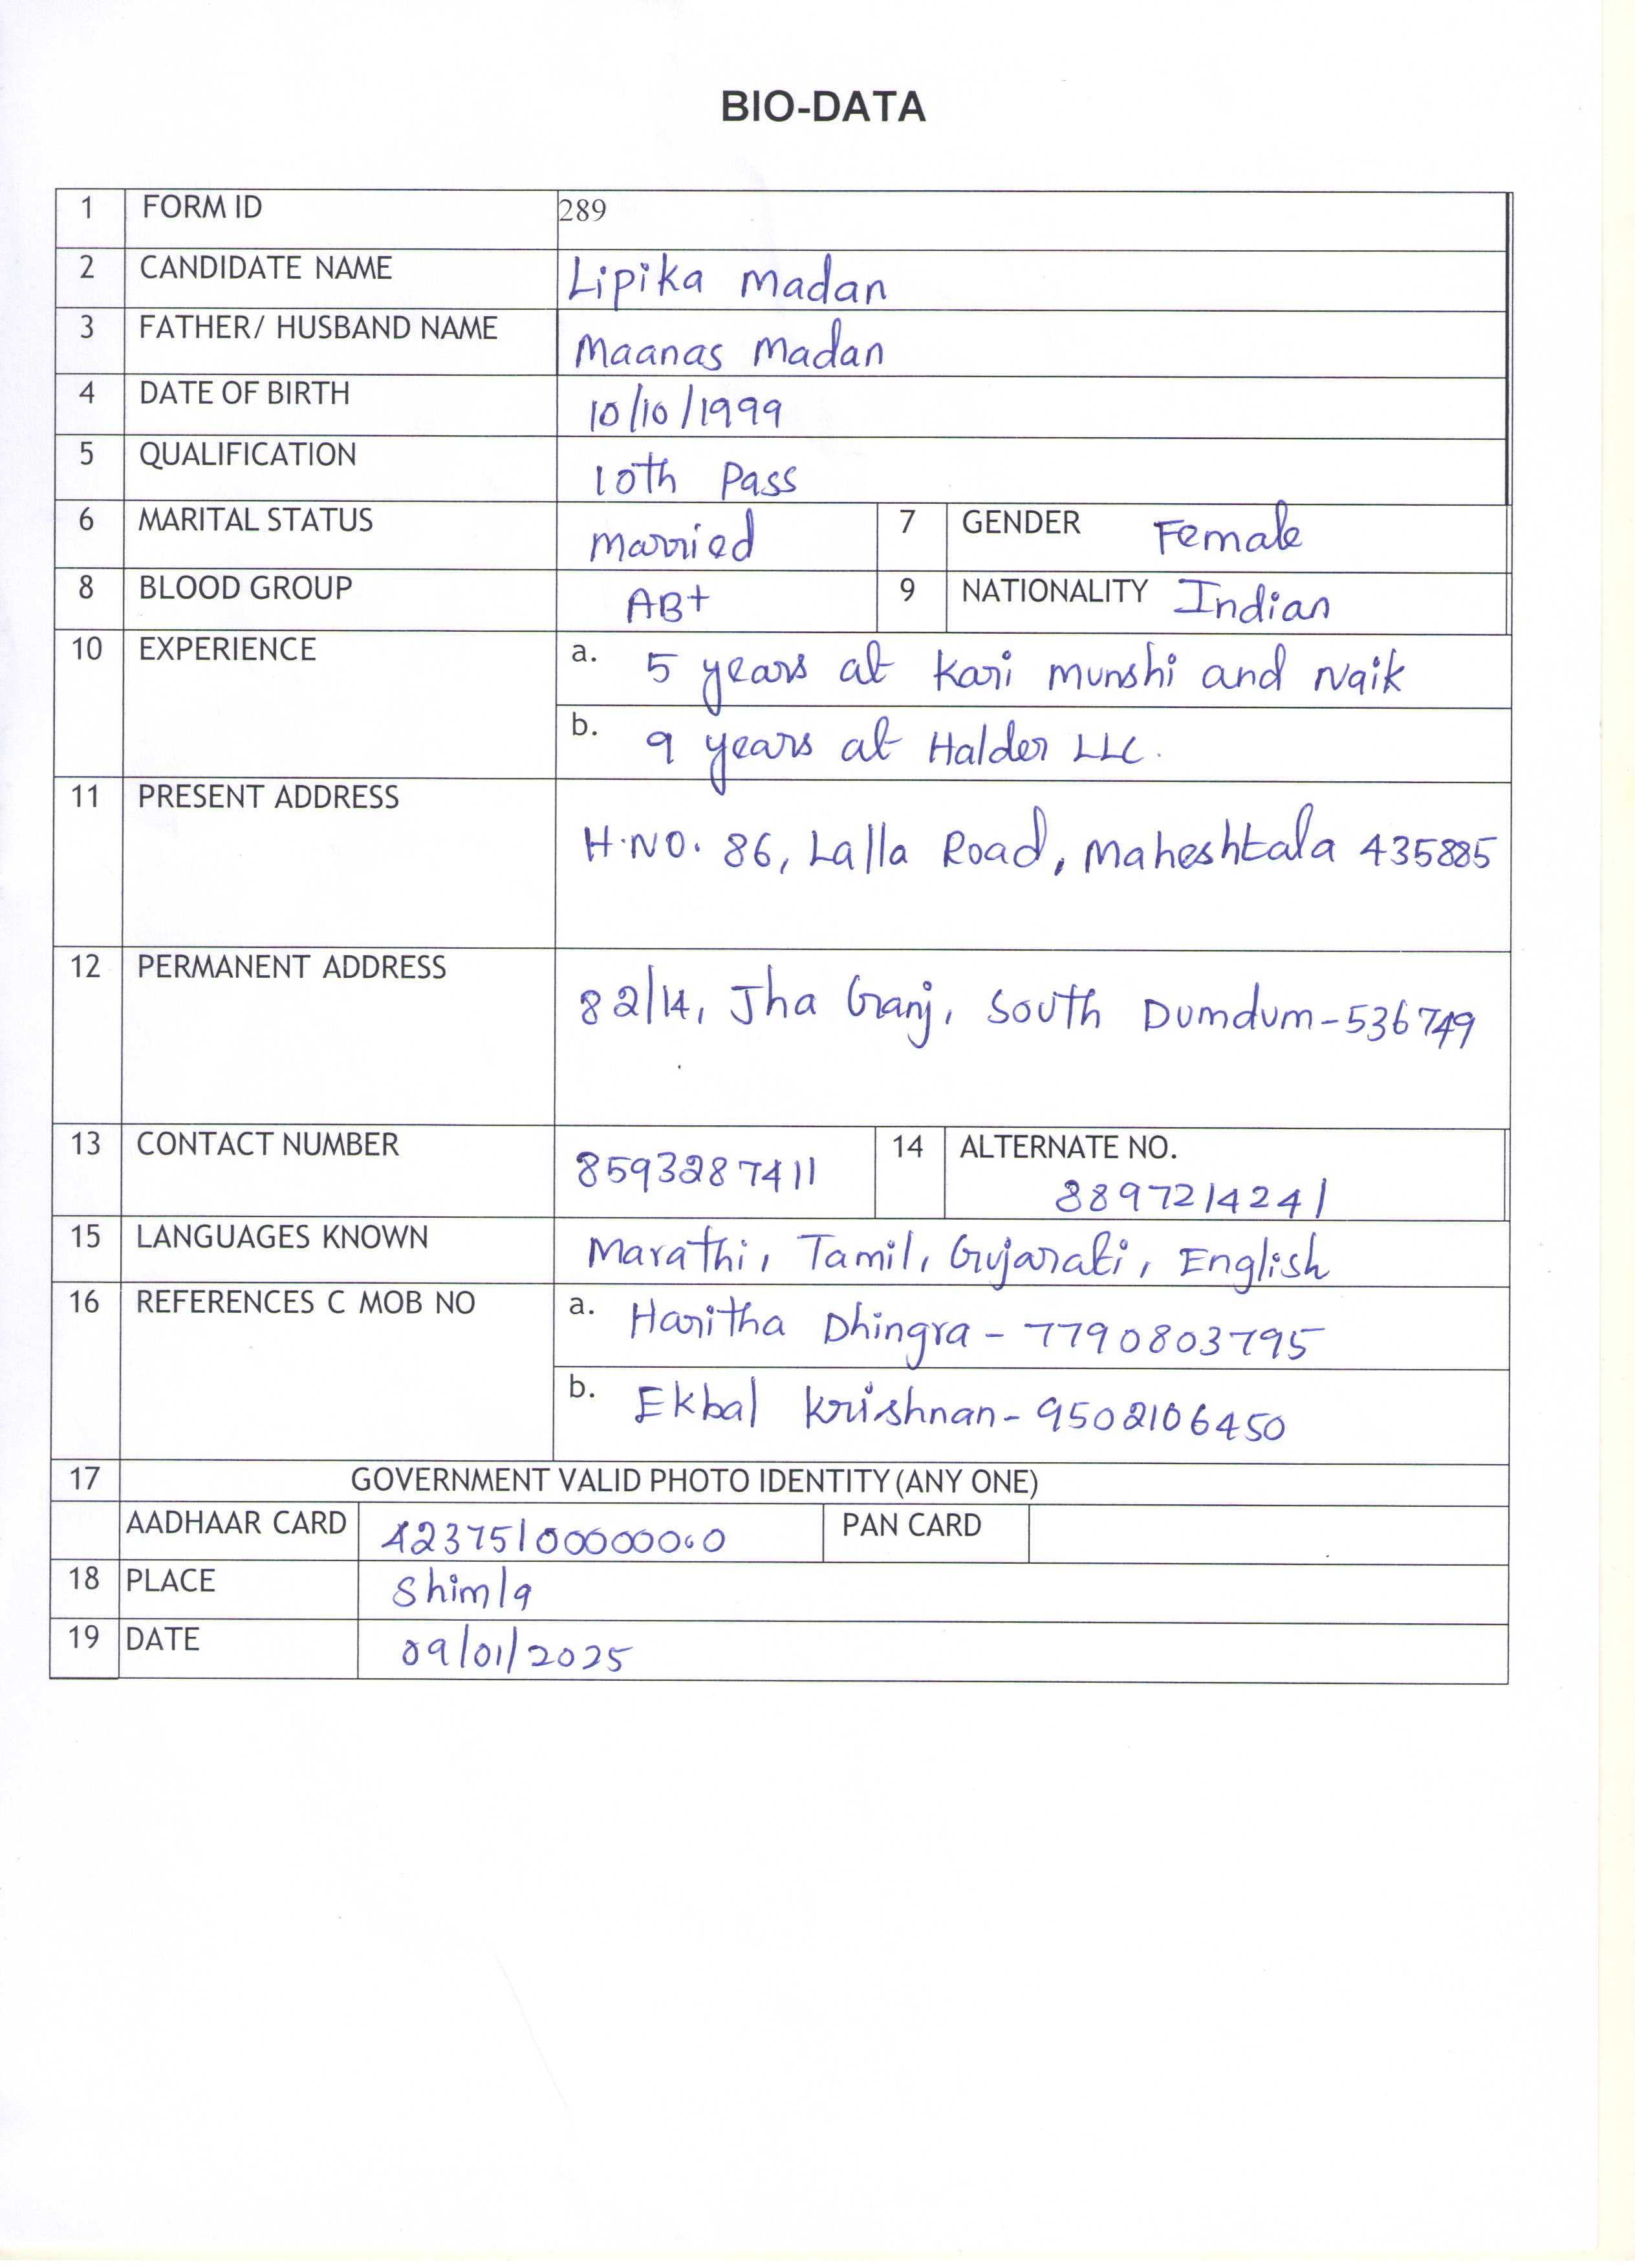 BIO-DATA
1 FORM ID 289
2 CANDIDATE NAME Lipika Madan
3 FATHER/ HUSBAND NAME Maanas Madan
4 DATE OF BIRTH 10/10/1999
5 QUALIFICATION 10th Pass
6 MARITAL STATUS Married 7 GENDER Female
8 BLOOD GROUP AB+ 9 NATIONALITY Indian
10 EXPERIENCE a. 5 years at Kari Munshi and Naik
b. 9 years at Halder LLC.
11 PRESENT ADDRESS
H.NO. 86, Lalla Road, Maheshtala 435885
12 PERMANENT ADDRESS
82/14, Jha Ganj, South Dumdum-536749
13 CONTACT NUMBER 8593287411 14 ALTERNATE NO.
8897214241
15 LANGUAGES KNOWN Marathi, Tamil, Gujarati, English
16 REFERENCES C MOB NO a. Haritha Dhingra - 7790803795
b. Ekbal Krishnan - 9502106450
17 GOVERNMENT VALID PHOTO IDENTITY (ANY ONE)
AADHAAR CARD PAN CARD
18 PLACE Shimla
19 DATE 09/01/2025